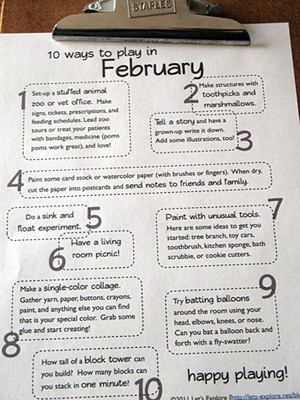 STAPLES
10 ways to play in
February
1
Set-up a stuffed animal
zoo or vet office. Make
signs, tickets, prescriptions, and
feeding schedules. Lead zoo
tours or treat your patients
with bandages, medicine (poms
poms work great), and love!
2
Make structures with
toothpicks and
marshmallows.
Tell a story and have a
grown-up write it down.
Add some illustrations, too!
3
4
Paint some card stock or watercolor paper (with brushes or fingers). When dry,
cut the paper into postcards and send notes to friends and family.
Do a sink and
float experiment.
5
6
Have a living
room picnic!
7
Paint with unusual tools.
Here are some ideas to get you
started: tree branch, toy cars,
toothbrush, kitchen sponge, bath
scrubbie, or cookie cutters.
Make a single-color collage.
Gather yarn, paper, buttons, crayons,
paint, and anything else you can find
that is your special color. Grab some
glue and start creating!
8
9
Try batting balloons
around the room using your
head, elbows, knees, or nose.
Can you bat a balloon back and
forth with a fly-swatter?
How tall of a block tower can
you build? How many blocks can
you stack in one minute?
10
happy playing!
©2011 Let's Explore (http://lets-explore.net/blo